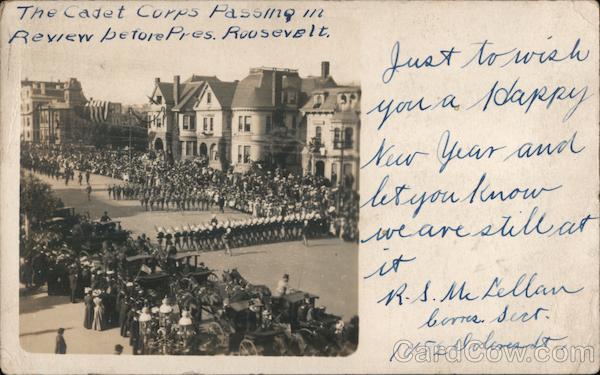 The Cadet Corps Passing in
Review before Pres. Roosevelt.
Just to wish
you a Happy
New Year and
let you know
we are still at
it
R. S. McLellan
Corres. Sect.
Dolores St.
CardCow.com